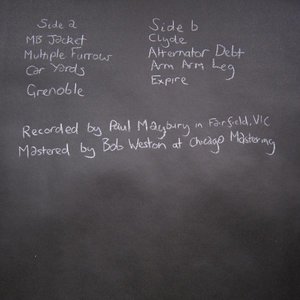 Side a
MB Jacket
Multiple Furrows
Car Yards
Grenoble
Side b
Clyde
Alternator Debt
Arm Arm Leg
Expire
Recorded by Paul Maybury in Fairfield, VIC
Mastered by Bob Weston at Chicago Mastering